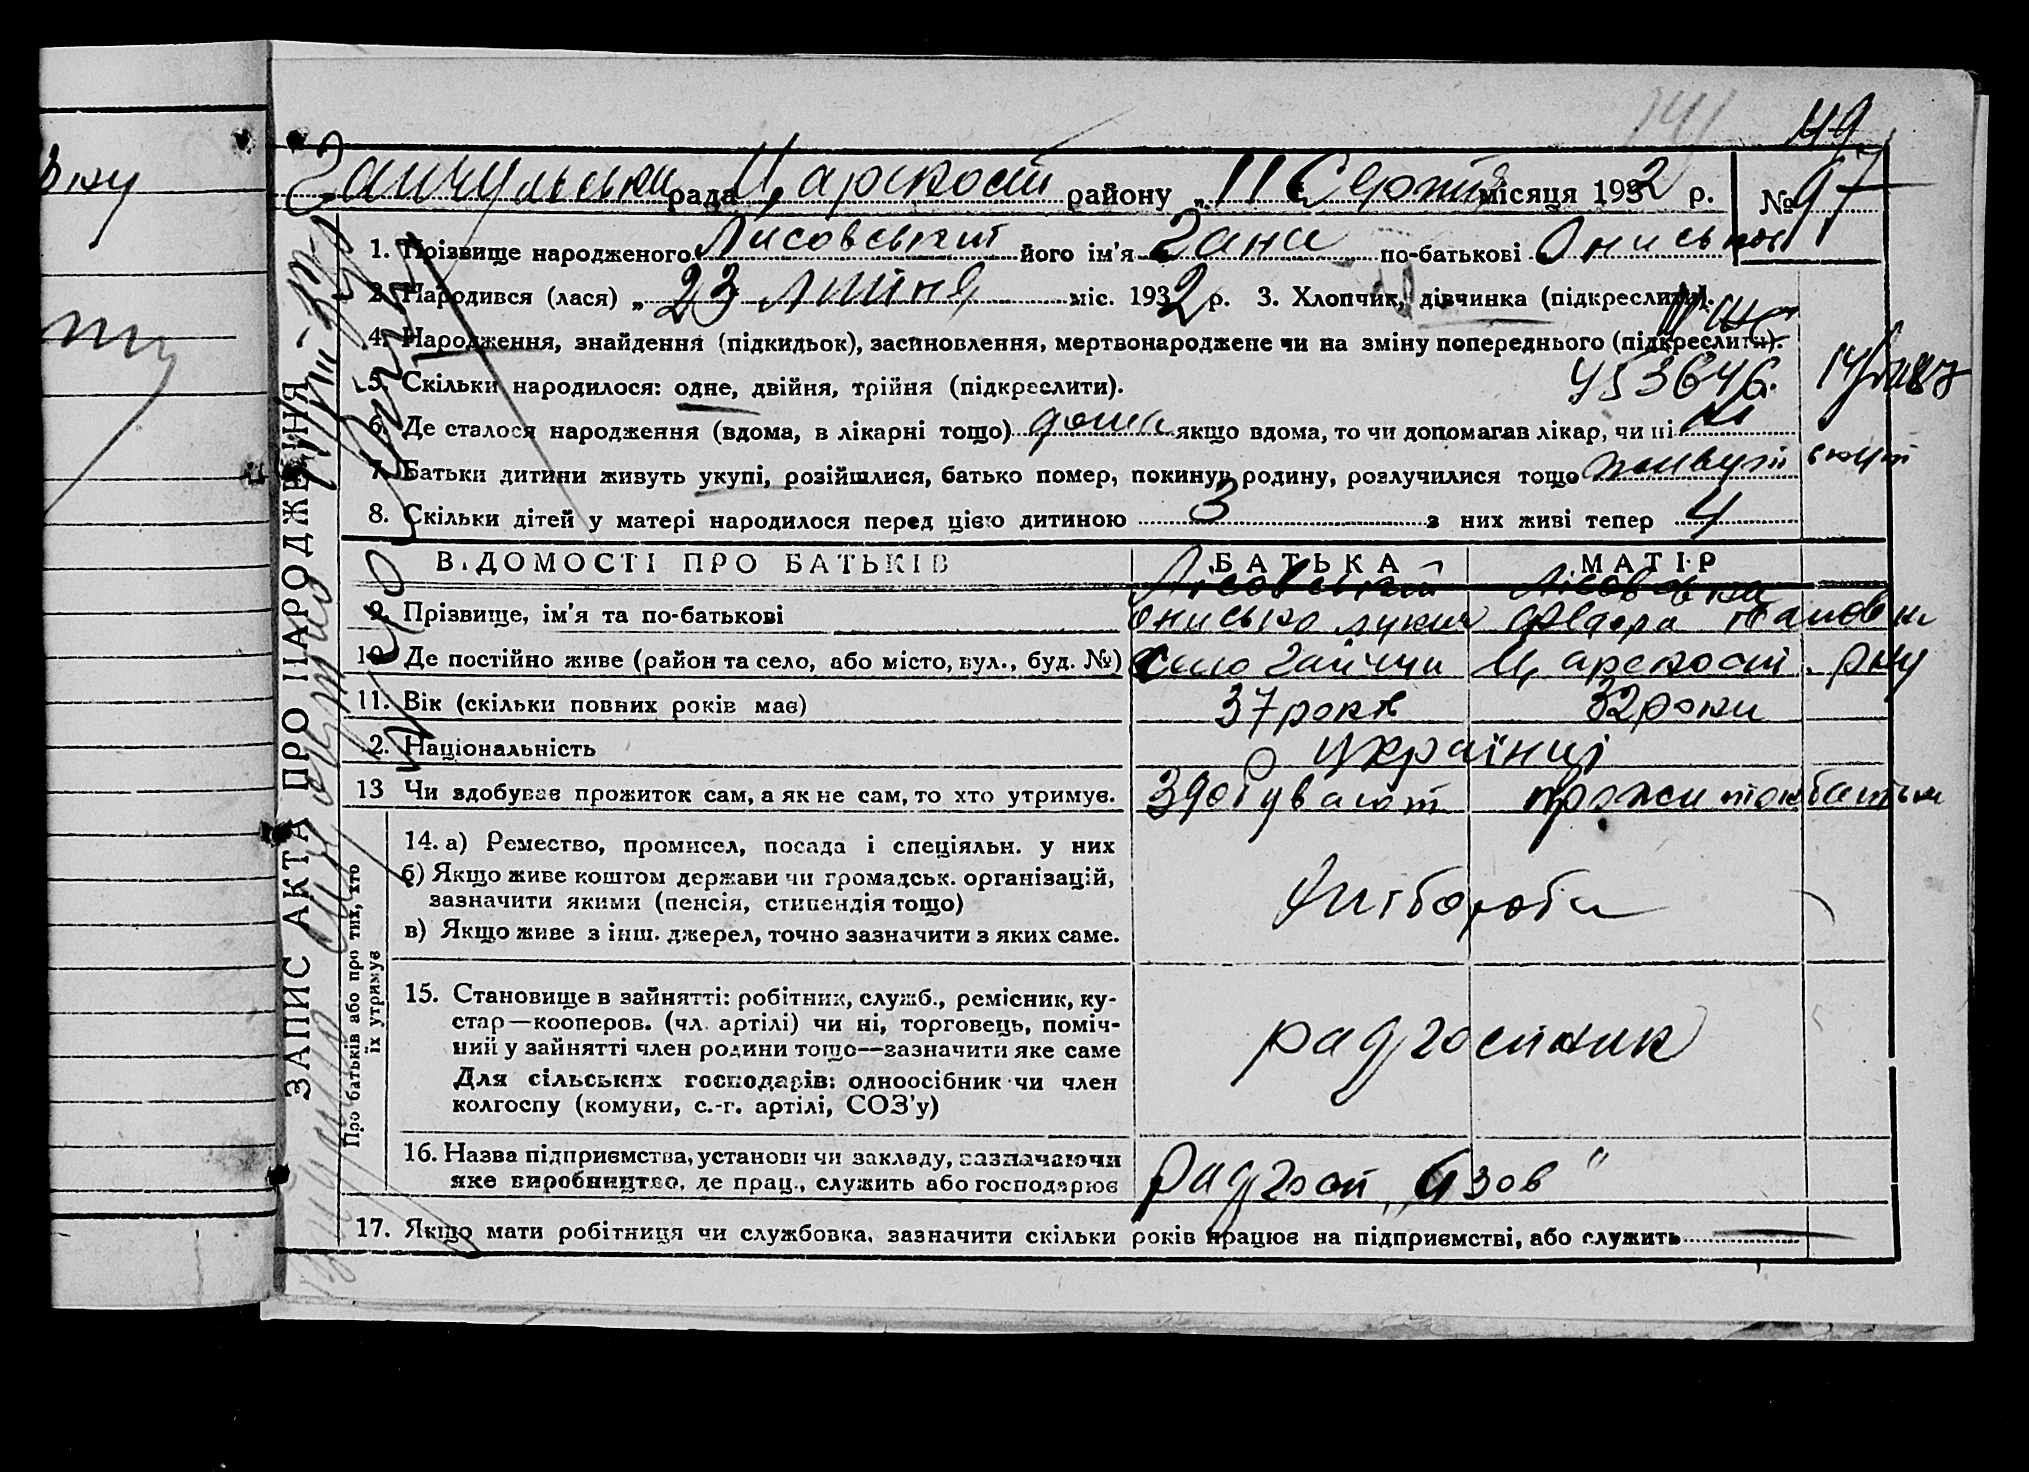 141 119
рада Царекост району „11 Серпня місяця 1932 р. № 97
1. Прізвище народженого Лисовський його ім'я Гани по-батькові Ониськов
2. Народився (лася) „ 23 липня міс. 1932 р. 3. Хлопчик, дівчинка (підкреслити).
4. Народження, знайдення (підкидьок), засиновлення, мертвонароджене чи на зміну попереднього (підкреслити).
5. Скільки народилося: одне, двійня, трійня (підкреслити). 453646.
6. Де сталося народження (вдома, в лікарні тощо) дома якщо вдома, то чи допомагав лікар, чи ні ні
7. Батьки дитини живуть укупі, розійшлися, батько помер, покинув родину, розлучилися тощо живут вкупі
8. Скільки дітей у матері народилося перед цією дитиною 3 з них живі тепер 4
ВІДОМОСТІ ПРО БАТЬКІВ БАТЬКА МАТІР
Лісовський Лісовська
9. Прізвище, ім'я та по-батькові Онисько Лукич Федора
10. Де постійно живе (район та село, або місто, вул., буд. №) село Гайччи Царекост. рну
11. Вік (скільки повних років має) 37 років 32 роки
12. Національність українці
13 Чи здобуває прожиток сам, а як не сам, то хто утримує. здобувают прожиток батьки
14. а) Ремество, промисел, посада і спеціяльн. у них
б) Якщо живе коштом держави чи громадськ. організацій,
зазначити якими (пенсія, стипендія тощо)
в) Якщо живе з інш. джерел, точно зазначити з яких саме.
хліборобы
15. Становище в зайнятті: робітник, служб., ремісник, ку-
стар—кооперов. (чл. артілі) чи ні, торговець, поміч-
ний у зайнятті член родини тощо—зазначити яке саме
Для сільських господарів: одноосібник чи член
колгоспу (комуни, с.-г. артілі, СОЗ'у)
радгоспник
16. Назва підприємства, установи чи закладу, зазначаючи
яке виробництво, де прац., служить або господарює
радгосп „Азов"
17. Якщо мати робітниця чи службовка, зазначити скільки років працює на підприємстві, або служить
ЗАПИС АКТА ПРО НАРОДЖЕННЯ
Про батьків або про тих, хто
їх утримує
рну